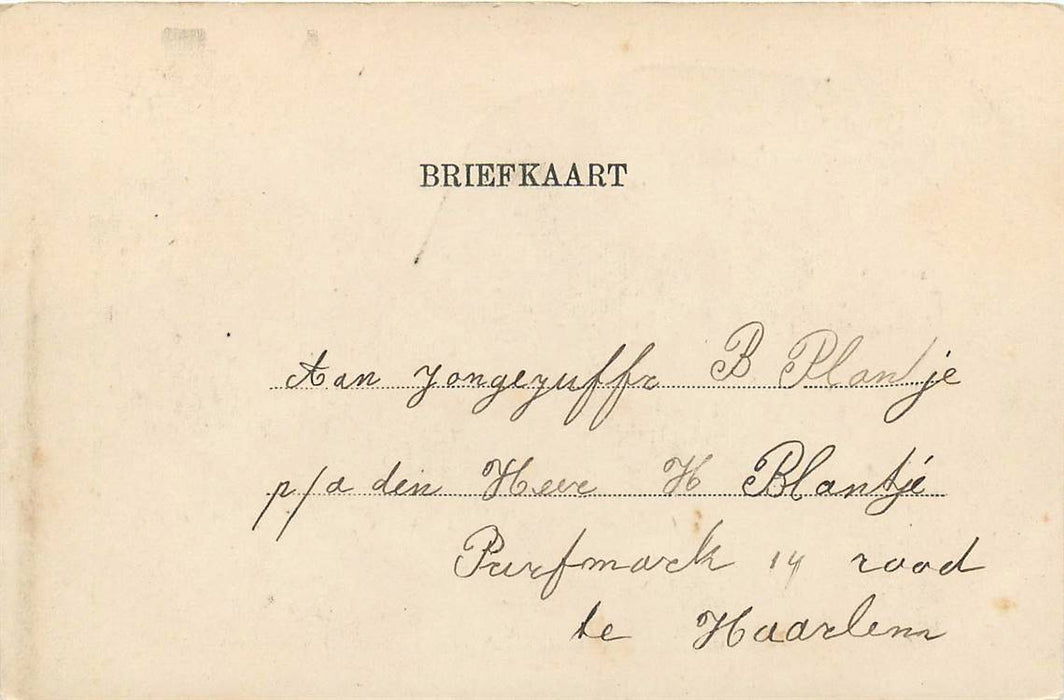 BRIEFKAART
Aan Jongejuffr B Plantje
p/a den Heer H Blantjé
Purfmark 14 rood
te Haarlem